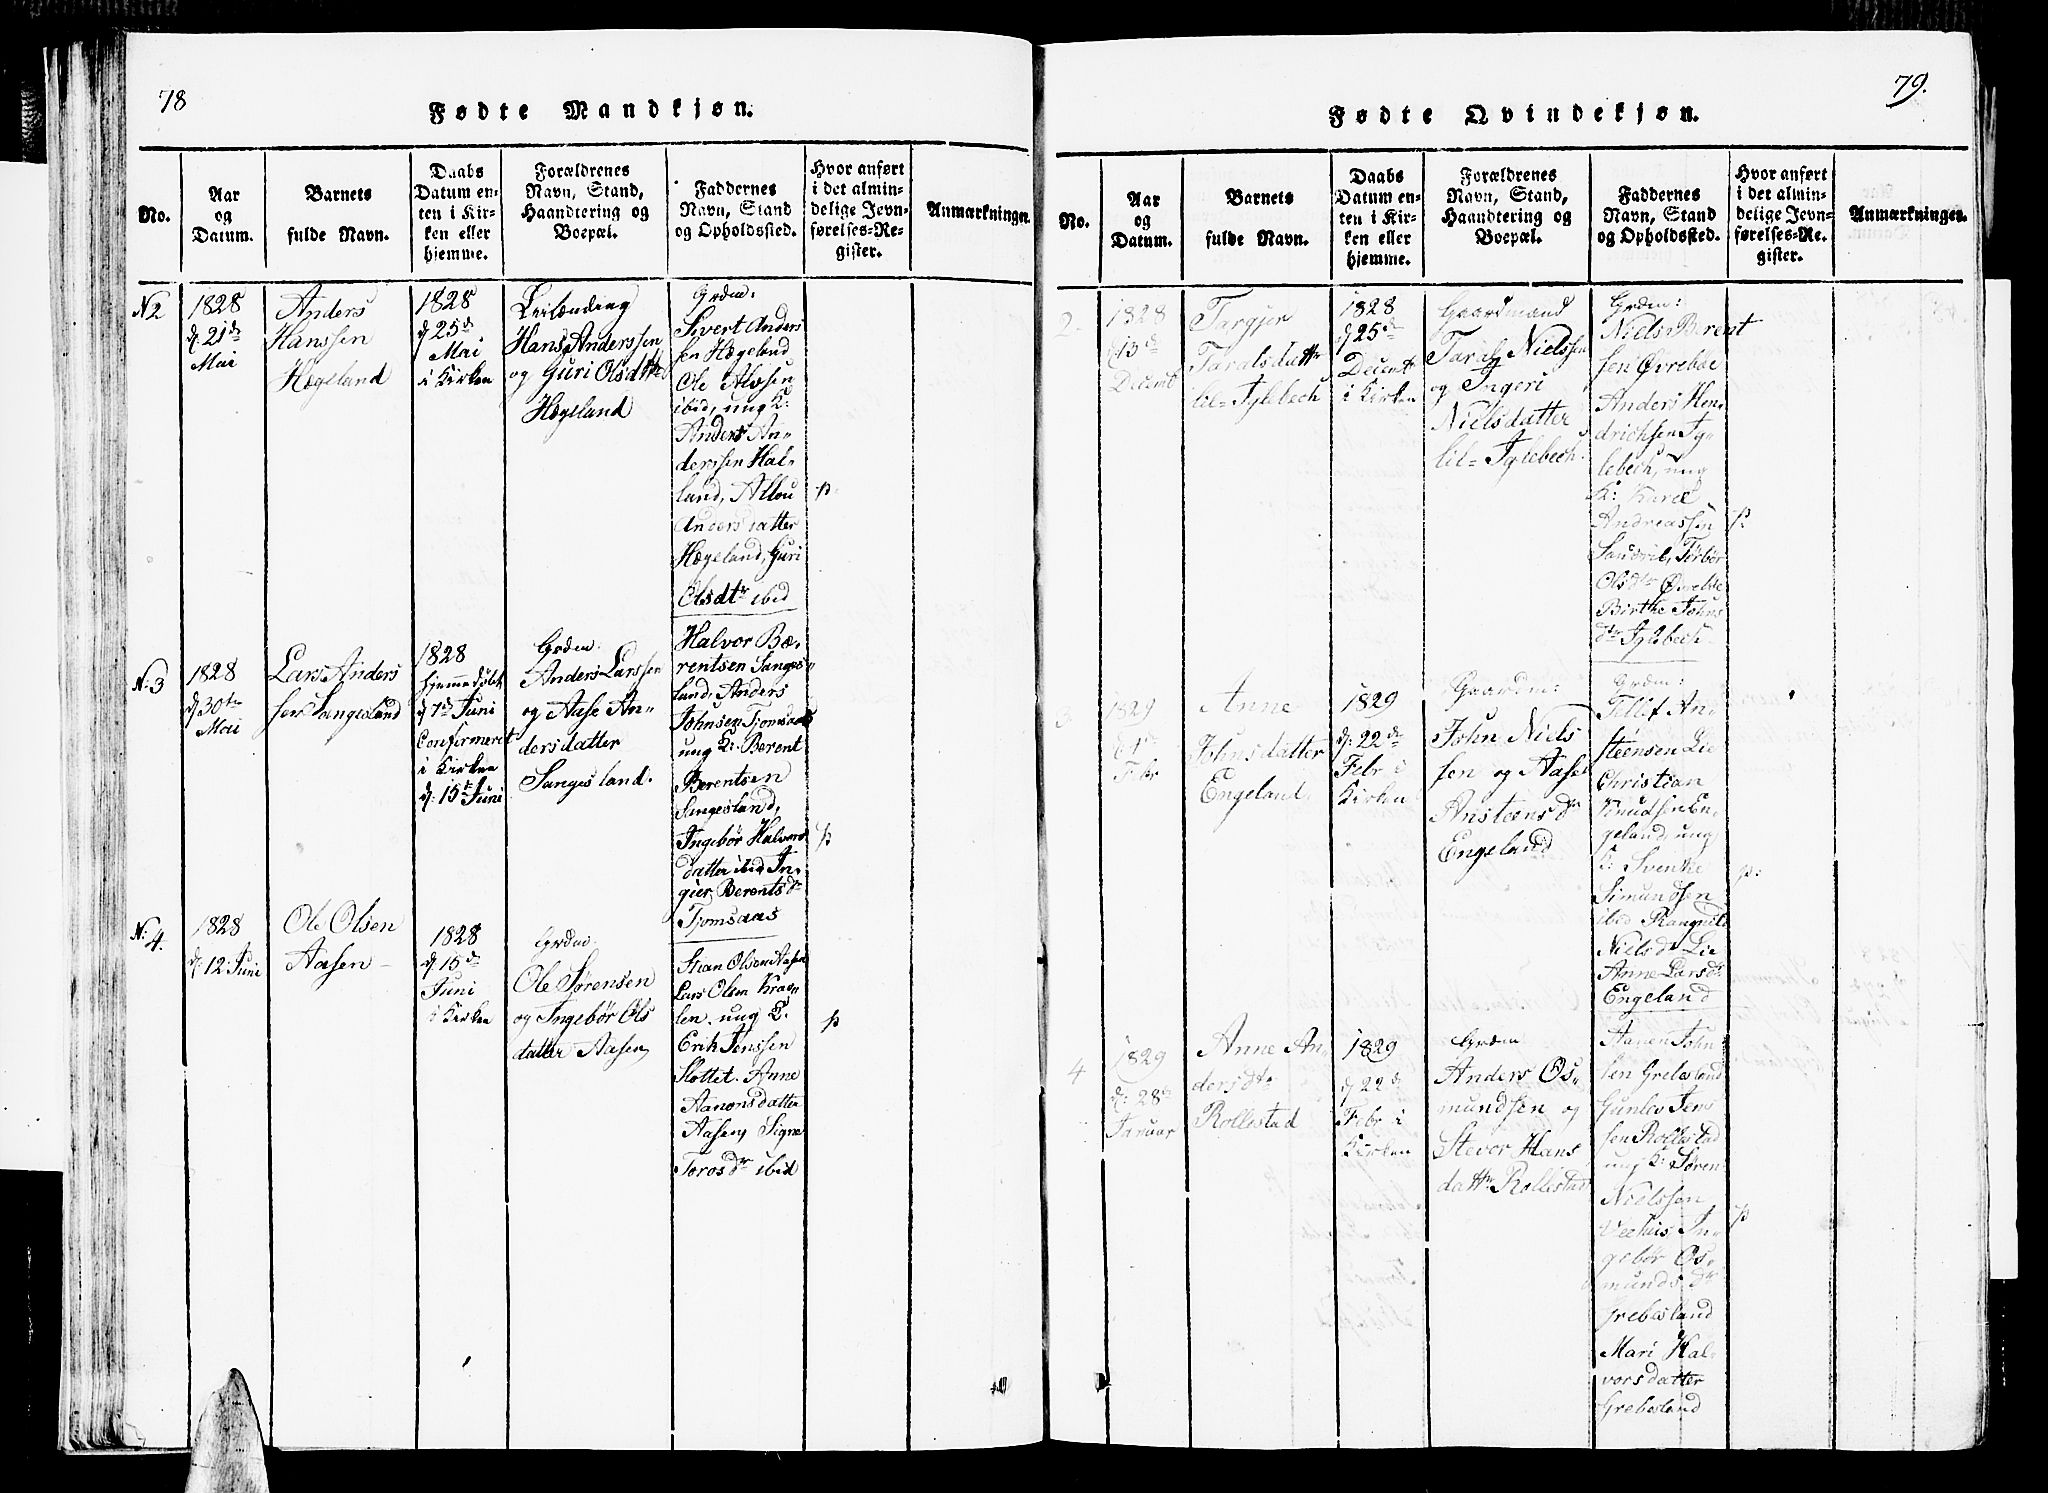 78
Fødte Mandkjøn.
No.
Aar
og
Datum.
Barnets
fulde Navn.
Daabs
Datum en-
ten i Kir-
ken eller
hjemme.
Forældrenes
Navn, Stand,
Haandtering og
Boepæl.
Faddernes
Navn, Stand
og Opholdssted.
Hvor anført
i det almin-
delige Jevn-
førelses-Re-
gister.
Anmærkninger.
N2
1828
d. 21de
Mai
Anders
Hanssen
Hægeland
1828
d 25de
Mai
i Kirken
Leilænding
Hans Anderssen
og Guri Olsdttr
Hægeland
Grdm:
Sivert Anders
sen Hægeland
Ole Alvsen
ibid, ung K:
Anders An-
derssen Hal-
land,
Anders datter
Hægeland, Guri
Olsdtr ibid
p.
N:3
1828
d 30te
Mai
Lars Anders
sen Sangesland
1828
hjemmedøbt
d 7de Juni
Confirmeret
i Kirken
d: 15de Juni
Grdm.
Anders Larssen
og Aase An-
dersdatter
Sangesland.
Halvor Be-
rentsen Sanges-
land, Anders
Johnsen Tjomsaas
ung K: Berent
Berentsen
Sangesland,
Ingebør Halvors
datter ibid In-
gier Berentsdr
Tjomsaas
p
N: 4.
1828
d: 12 Juni
Ole Olsen
Aasen
1828
d: 15de
Juni
i Kirken
Grdm.
Ole Sørensen
og Ingebør Ols
datter Aasen
Stian Olsen Aasen
Lars Olsen
len, ung K.
Erik Jenssen
Slottet. Anne
Aanonsdatter
Aasen, Signe
Torosdr ibid
p
79.
Fødte Qvindekjøn.
No.
Aar
og
Datum.
Barnets
fulde Navn.
Daabs
Datum en-
ten i Kir-
ken eller
hjemme.
Forældrenes
Navn, Stand,
Haandtering og
Boepæl.
Faddernes
Navn, Stand
og Opholdssted.
Hvor anført
i det almin-
delige Jevn-
førelses-Re-
gister.
Anmærkninger.
2.
1828
Decembr
Targjer
Taralsdattr
lil-Iglebech
1828
d 25de
Decembr
i Kirken
Gaardmand
Taral Nielssen
og Ingeri
Nielsdatter
lil-Iglebech.
Grdm:
Niels Berent
sen Øvreboe
Anders Hen-
drichsen Ig-
lebech, ung
K:
Andreassen
Torbør
Olsdtr
Birthe Johns
dtr Iglebech
p.
3
1829
Febr
Anne
Johnsdatter
Engeland.
1829
d: 22de
Febr i
Kirken
Gaardm:
John Niels
sen og Aase
Ansteensdr
Engeland
Grdm:
Tellef An-
steensen Lie
Christian
Knudsen En-
geland, ung
K: Svenke
Simundsen
ibid Rangnild
Nielsdr Lie
Anne Larsdr
Engeland
p.
4
1829
d: 28de
Januar
Anne An-
dersdtr
Rollestad
1829
d 22de
Febr i
Kirken
Grdm
Anders Os-
mundsen og
Stevor Hans
dattr Rollestad
Aanen John-
sen Grebesland
Gunlev Jens
sen Rollestad
ung K: Søren
Nielssen
In-
gebør Os-
mundsdtr
Grebesland
Mari Hal-
vorsdatter
Grebesland
p